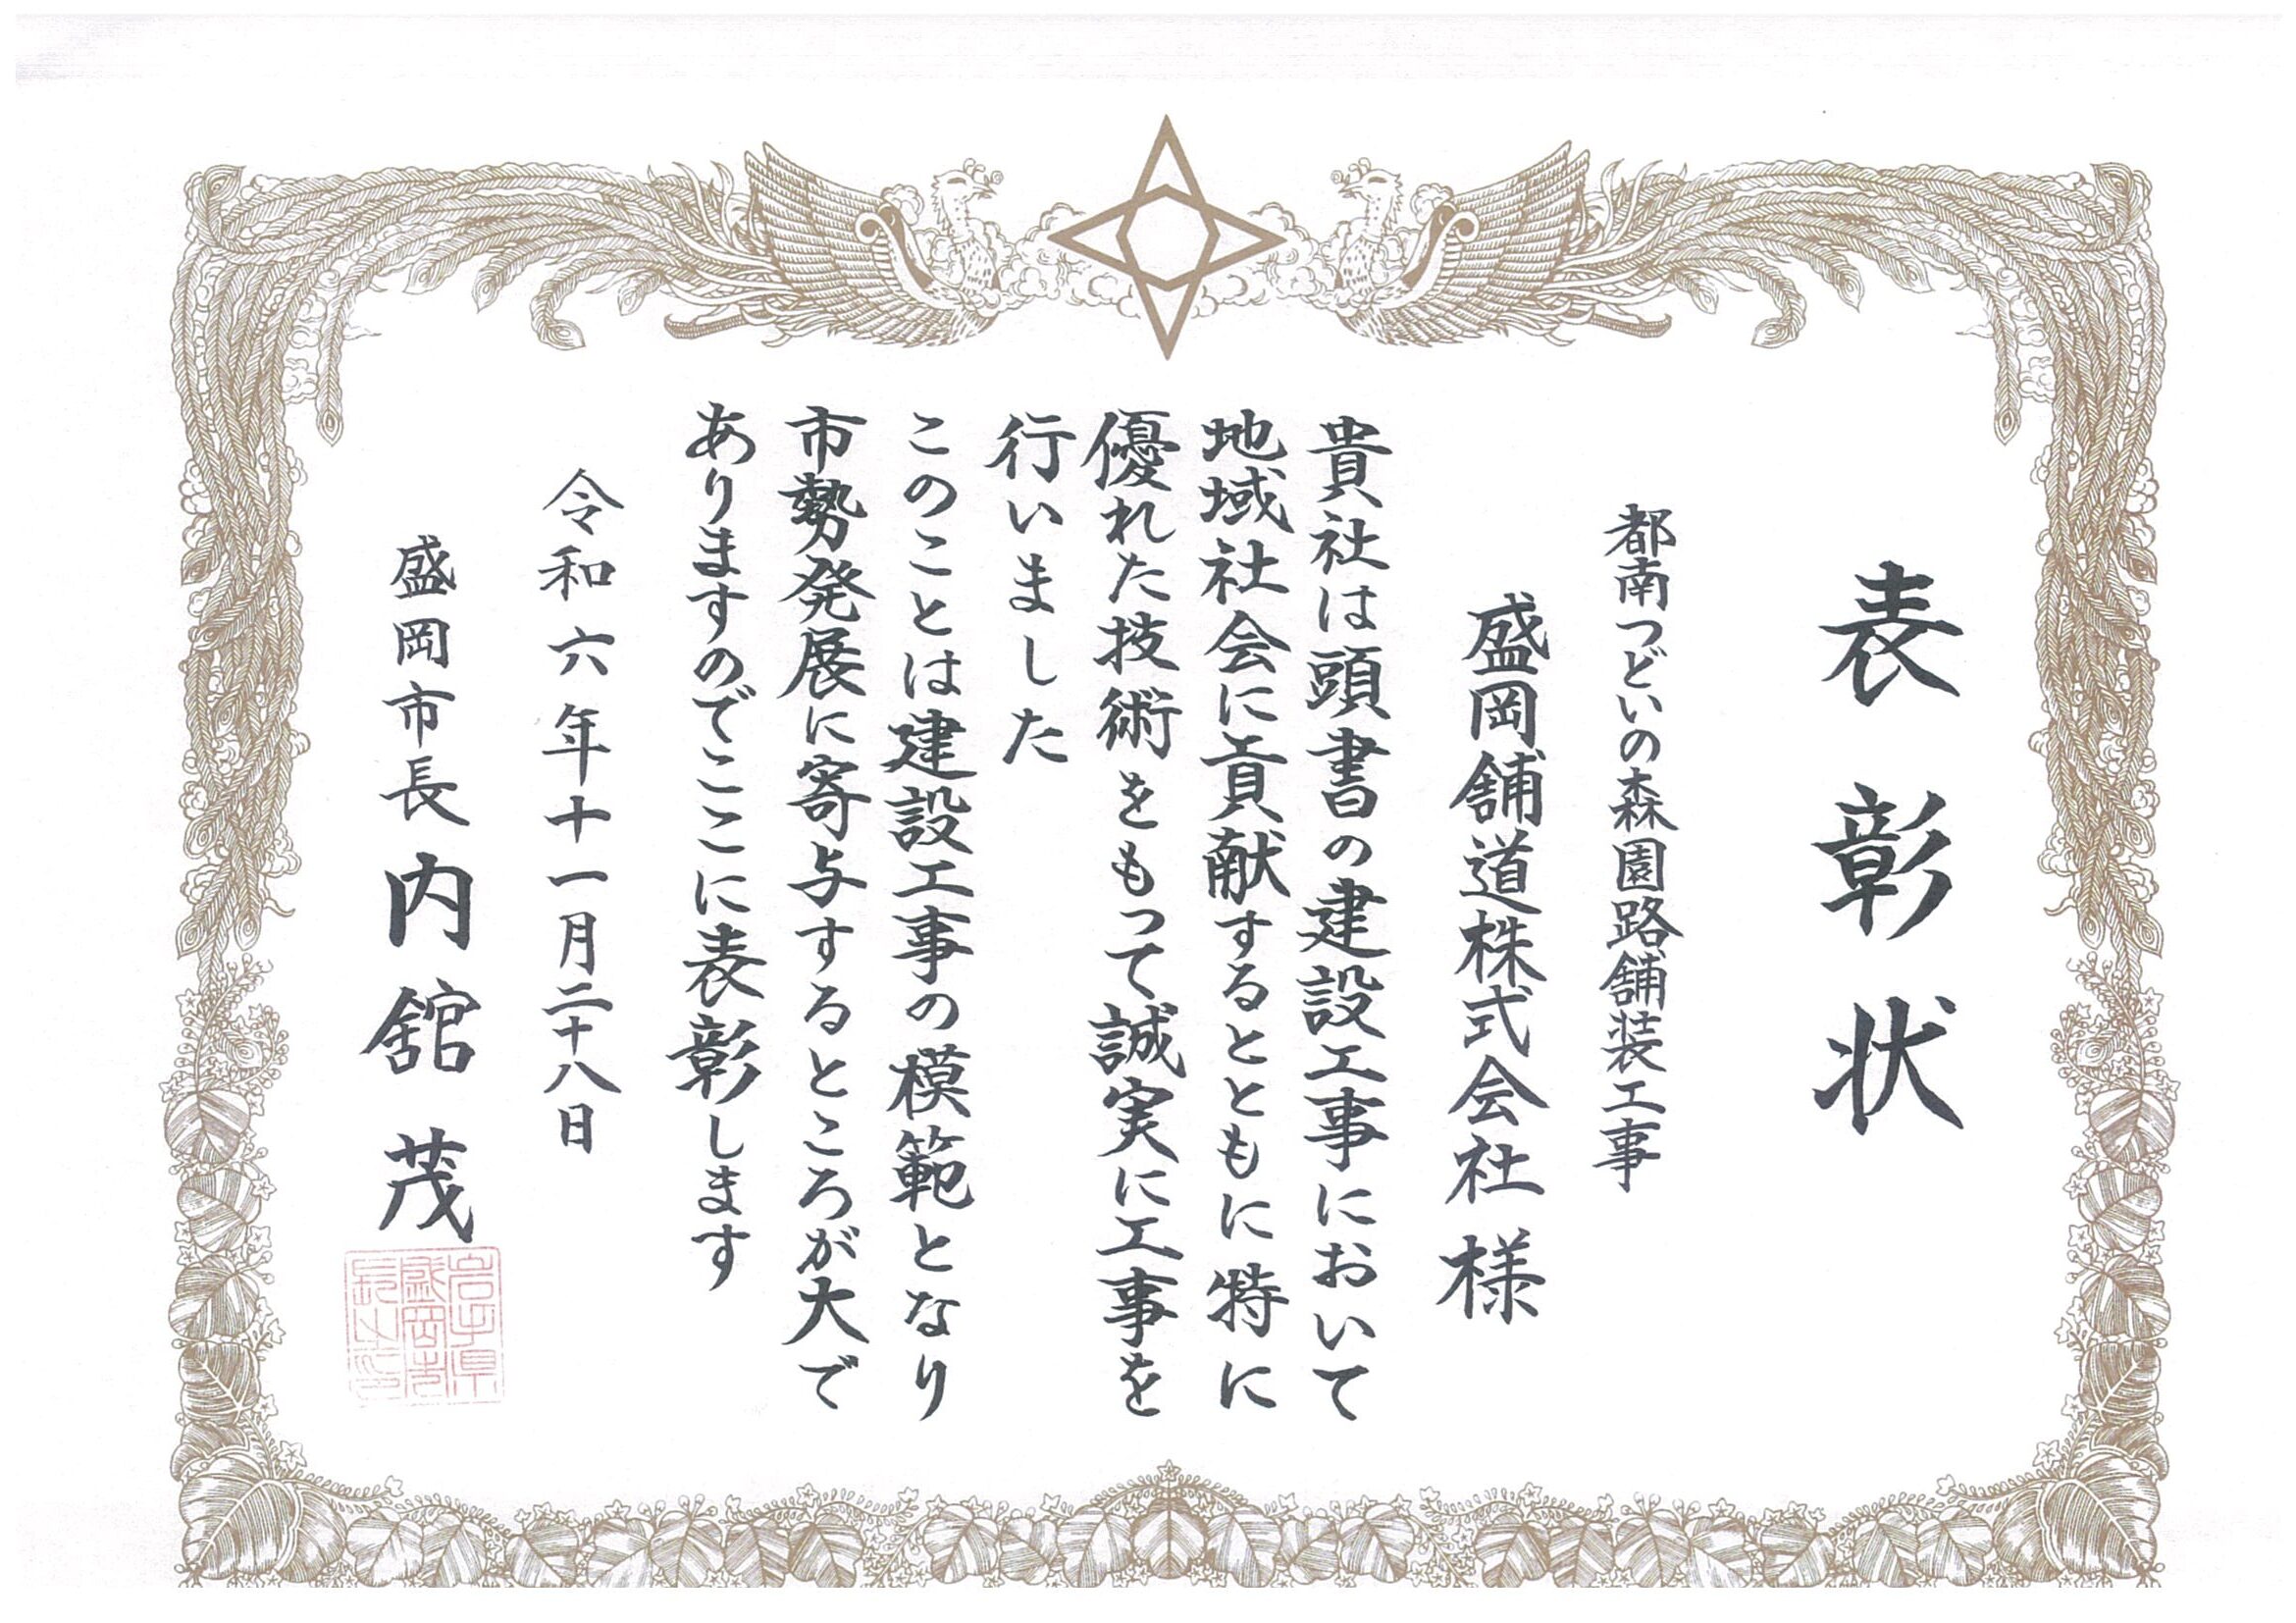 表彰状
都南つどいの森園路舗装工事
盛岡舗道株式会社 様
貴社は頭書の建設工事において
地域社会に貢献するとともに特に
優れた技術をもって誠実に工事を
行いました
このことは建設工事の模範となり
市勢発展に寄与するところが大で
ありますのでここに表彰します
令和六年十一月二十八日
盛岡市長 内舘 茂
岩手県
盛岡市
長之印